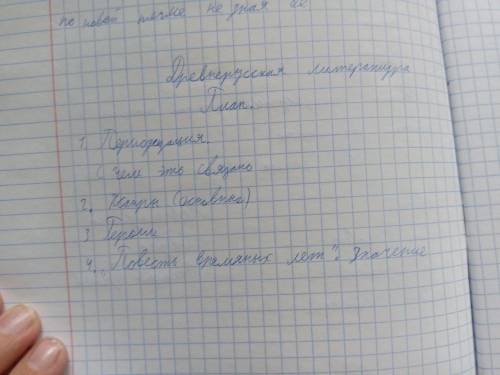 по новой теме не зная её
Древнерусская литература
План.
1. Периодизация.
С чем это связано
2. Жанры (основные)
3 Герои
4. "Повесть времяных лет". Значение